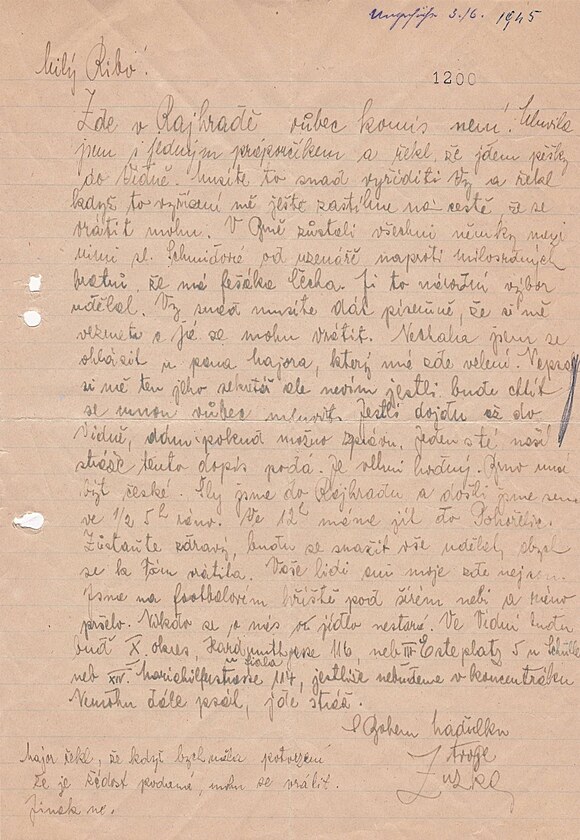 3./6. 1945
Milý Ríbo!
1200
Zde v Rajhradě vůbec komis není. Mluvila
jsem s jedným práporčíkem a řekl, že jdem pěšky
do Vídně. Musíte to snad vyříditi Vy a řekl
když to vyřízení mě ještě zastihne na cestě, že se
vrátit mohu. V Brně zůstali všechni němky mezi
nimi sl. Schmidové od uzenáře naproti milosrdných
bratrů, že má fešáka Čecha. Ji to národní výbor
udělal. Vy snad musíte dát písemně, že si mě
vezmete a já se mohu vrátit. Nechala jsem se
ohlásit u pana majora, který má zde velení.
si mě ten jeho sekretář ale nevím jestli bude chtít
se mnou vůbec mluvit. Jestli dojdu až do
Vídně, dám pokud možno zprávu. Jeden s té naší
stráže tento dopis podá. Je velmi hodný. Brno musí
být české. Šly jsme do Rajhradu a došli jsme sem
ve 1/2 5h ráno. Ve 12h máme jít do Pohořelic.
Zůstaňte zdravý, budu se snažit vše udělat, abych
se k Vám vrátila. Vaše lidi ani moje zde nejsou.
Jsme na footbalovem hříště pod širém nebi a ráno
pršelo. Nikdo se o nás o jídlo nestará. Ve Vídni budu
buď X. okres, 116, neb Esteplatz 5 u
neb XIV. Mariahilfstrasse 114, jestliže nebudeme v koncentráku
Nemohu dále psát, jde stráž.
S Bohem
Zuzka
Major řekl, že když bych měla potvrzení
že je žádost podaná, mohu se vrátit.
Jinak ne.